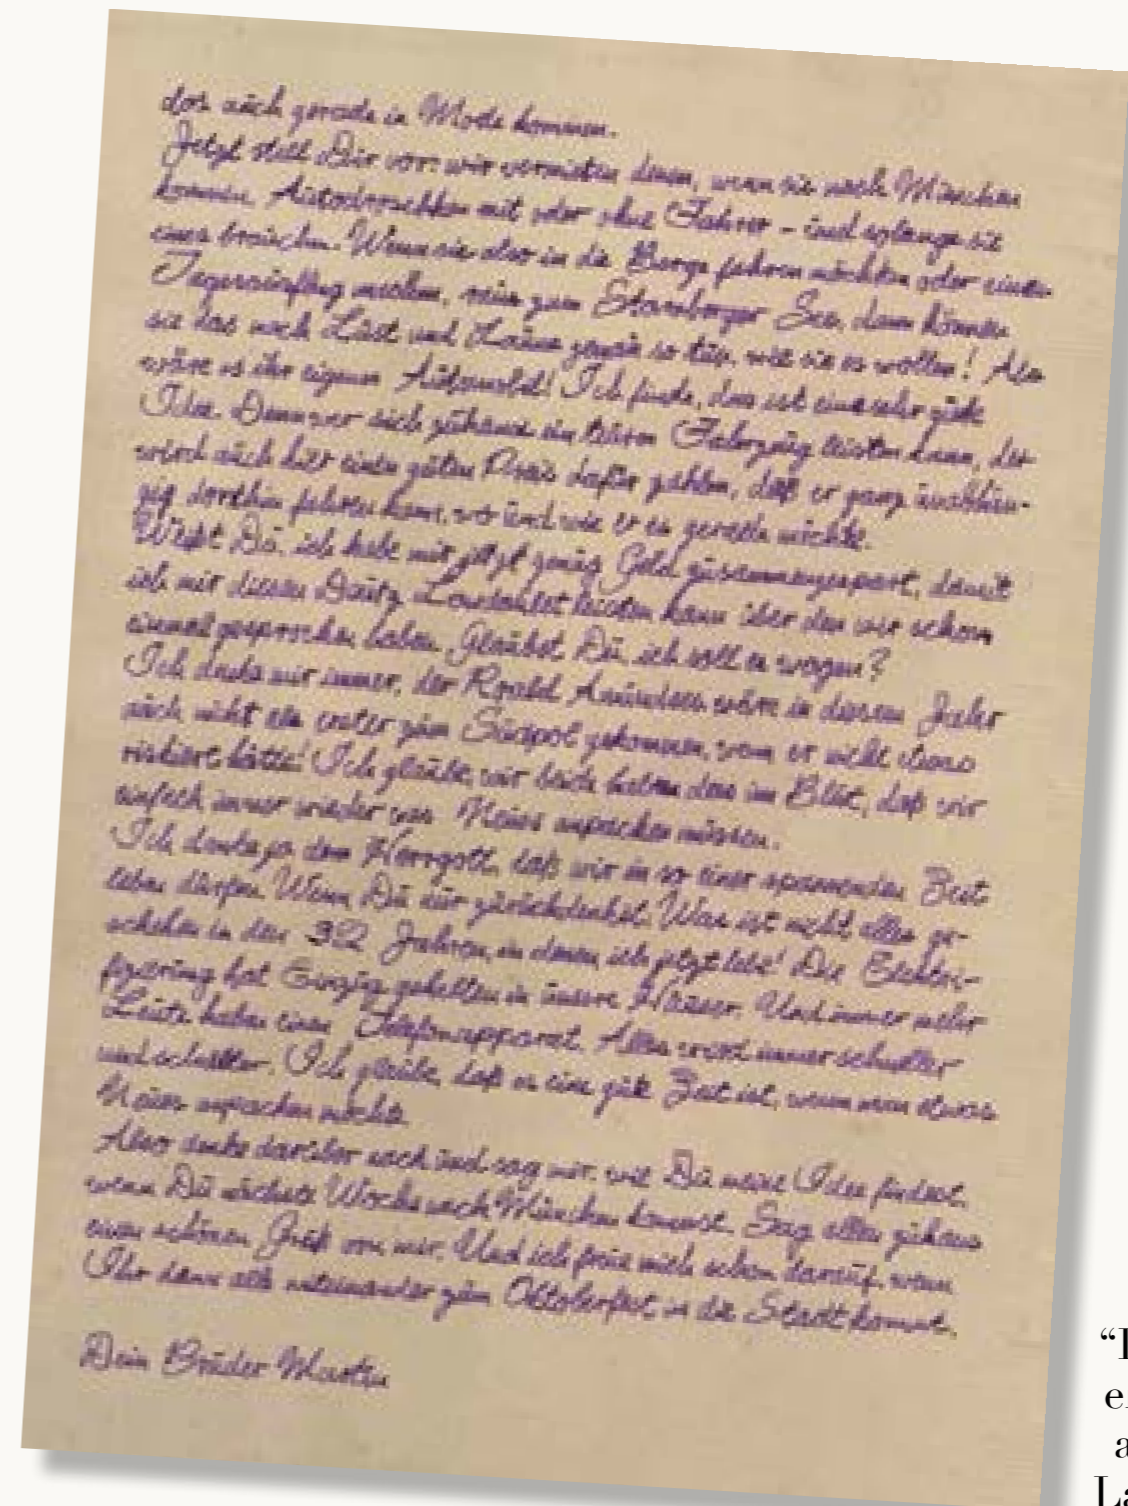 das auch gerade in Mode kommen.
Jetzt stell Dir vor: wir vermieten denen, wenn sie nach München
kommen, Autodroschken mit oder ohne Fahrer – und solange sie
eines brauchen. Wenn sie also in die Berge fahren möchten oder einen
Tagesausflug machen, raus zum Starnberger See, dann können
sie das nach Lust und Laune genau so tun, wie sie es wollen! Als
wäre es ihr eigenes Automobil! Ich finde, das ist eine sehr gute
Idee. Denn wer sich zuhause ein teures Fahrzeug leisten kann, der
wird auch hier einen guten Preis dafür zahlen, daß er ganz unabhän-
gig dorthin fahren kann, wo und wie er es gerade möchte.
Weißt Du, ich habe mir jetzt genug Geld zusammengespart, damit
ich mir diesen Deutz Landaulet leisten kann über den wir schon
einmal gesprochen haben. Glaubst Du, ich soll es wagen?
Ich denke mir immer, der Roald Amundsen wäre in diesem Jahr
auch nicht als erster zum Südpol gekommen, wenn er nicht etwas
riskiert hätte! Ich glaube, wir beide haben das im Blut, daß wir
einfach immer wieder was Neues anpacken müssen.
Ich danke ja dem Herrgott, daß wir in so einer spannenden Zeit
leben dürfen. Wenn Du nur zurückdenkst. Was ist nicht alles ge-
schehen in den 32 Jahren, in denen ich jetzt lebe! Die Elektri-
fizierung hat Einzug gehalten in unsere Häuser. Und immer mehr
Leute haben einen Telefonapparat. Alles wird immer schneller
und schneller. Ich glaube, daß es eine gute Zeit ist, wenn man etwas
Neues anpacken möchte.
Also denke darüber nach und sag mir, wie Du meine Idee findest,
wenn Du nächste Woche nach München kommst. Sag allen zuhaus
einen schönen Gruß von mir. Und ich freue mich schon darauf, wenn
Ihr dann alle miteinander zum Oktoberfest in die Stadt kommt.
Dein Bruder Martin